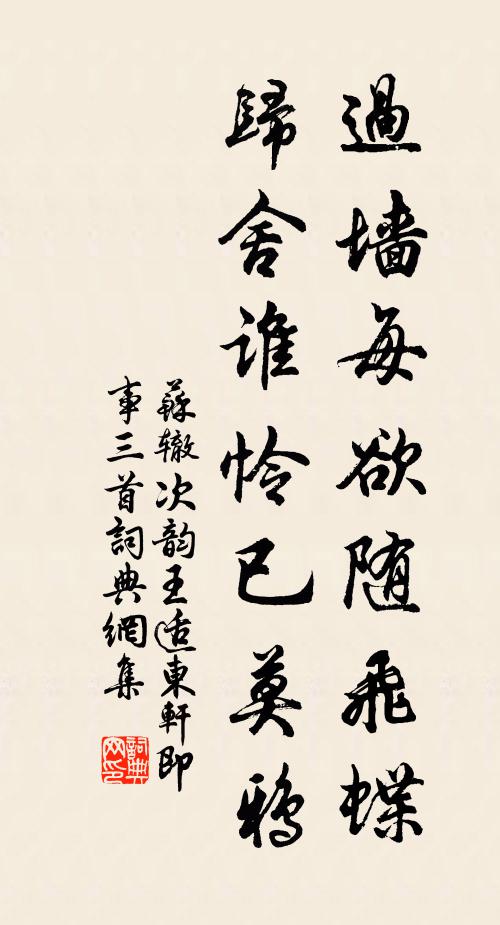 過墙每欲随飛蝶
歸舍谁怜已莫鴉
蘇辙次韵王适東軒即
事三首詞典網集
詞典网印